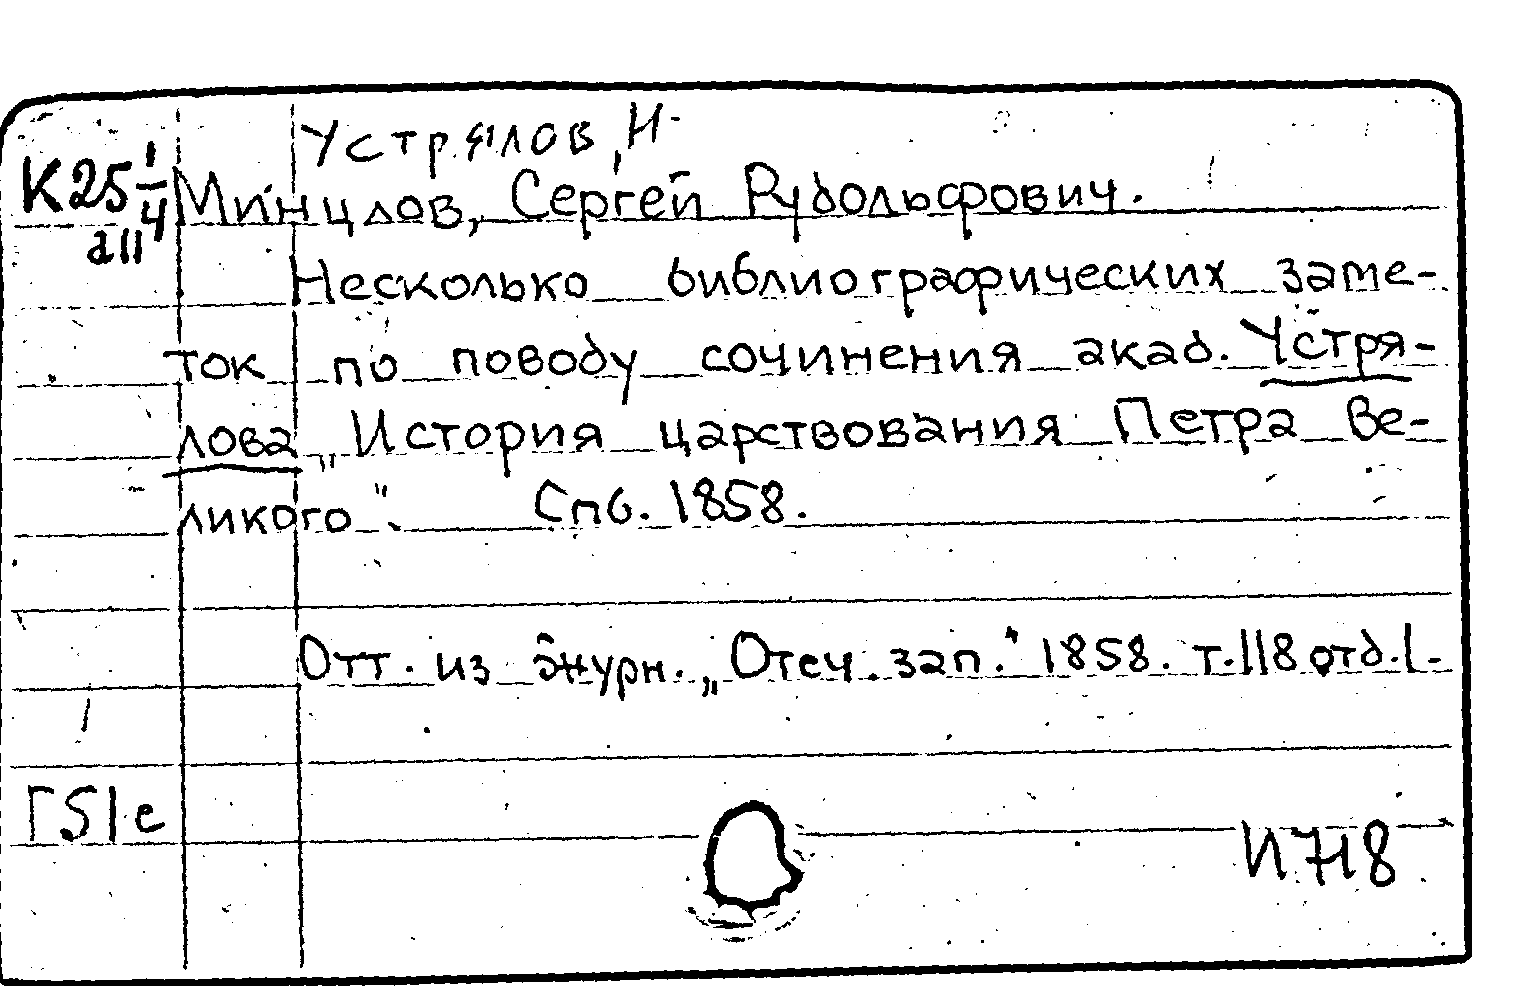 Устрялов, Н.
К25 1/4
а11
Минцлов, Сергей Рудольфович.
Несколько библиографических заме-
ток по поводу сочинения акад. Устря-
лова „История царствования Петра Ве-
ликого“. Спб. 1858.
Отт. из журн. „Отеч. зап.“ 1858. т.118 отд.1.
Г51е
И718